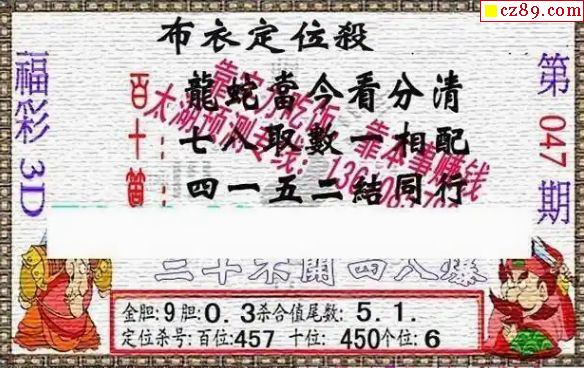 cz89.com
布衣定位殺
福彩3D
第047期
百:
十:
龍蛇當今看分清
七八取數一相配
四一五二結同行
靠实力吃饭 靠本事赚钱
太湖预测专线:
三十不開四八爆
金胆:9胆:0.3杀合值尾数:5.1.
定位杀号:百位:457 十位:450个位:6